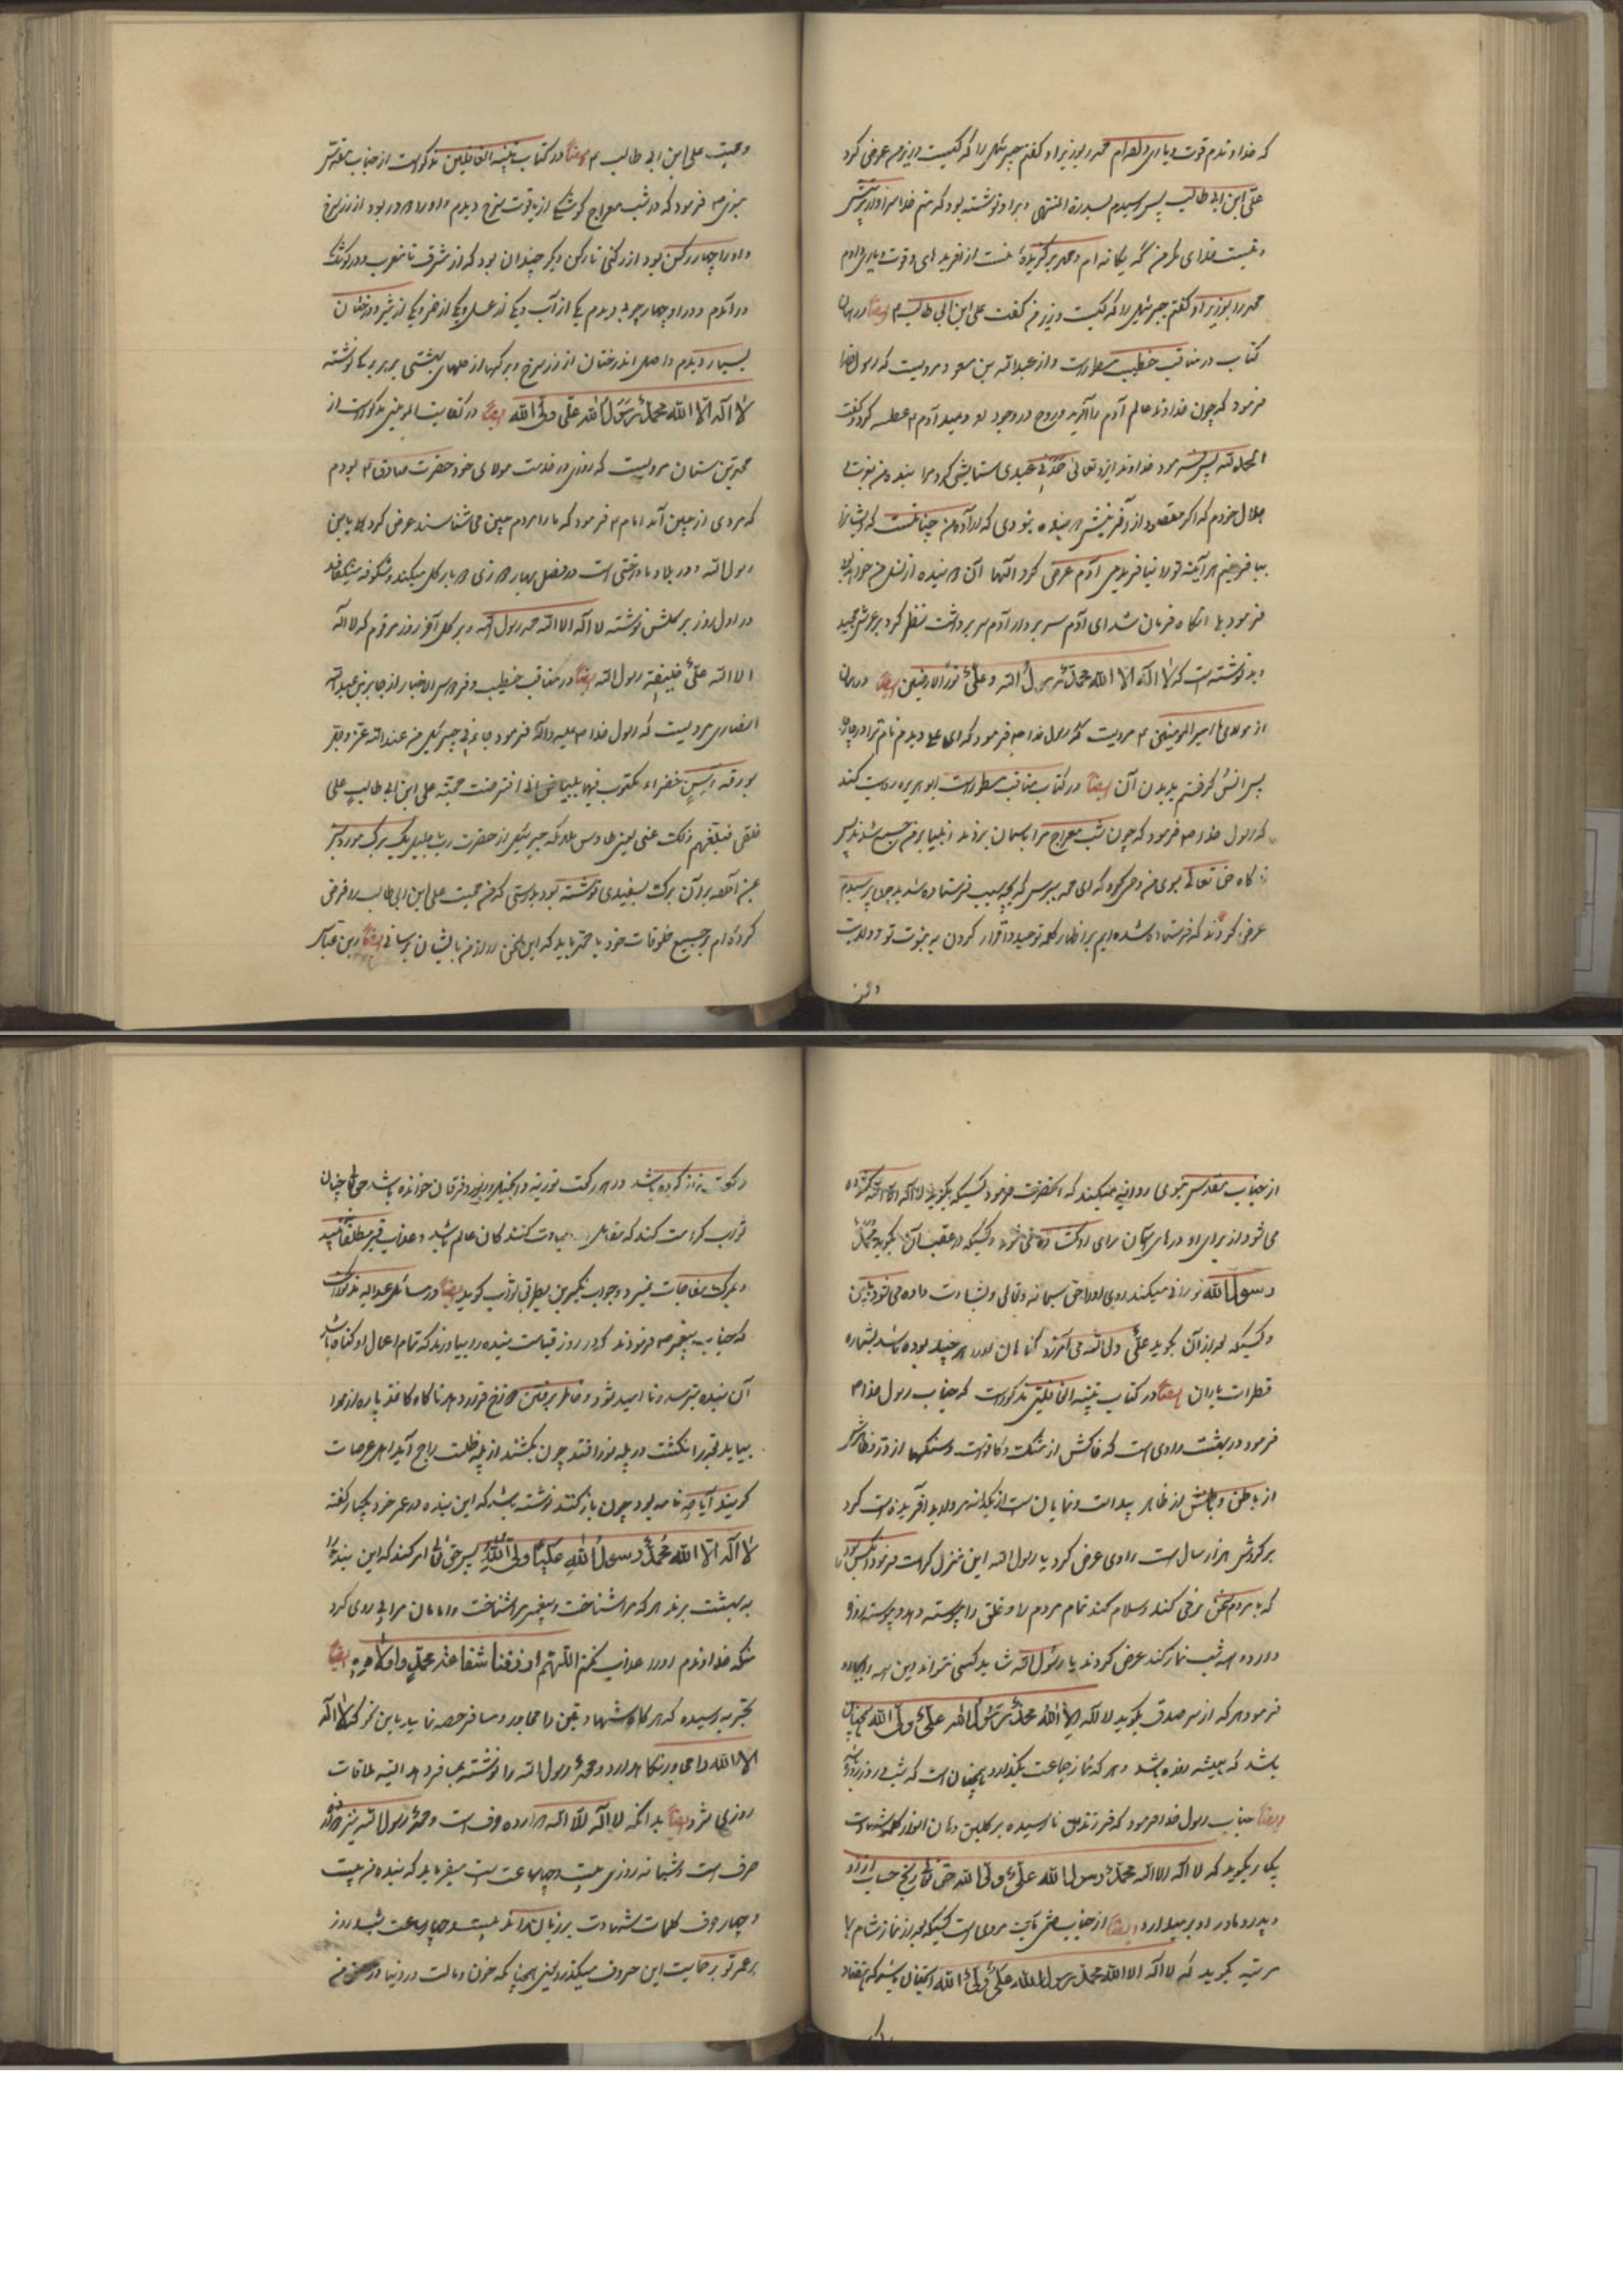 که خداوندم قوت و یاری دادم محمد را بوزیر او گفتم جبرئیل را که کیست وزیرم عرض کرد
علی ابن ابی طالب پس رسیدم بسدرة المنتهی و بر او نوشته بود که منم خدا سزاوار پرستش
و نیست خدای بجز من که یگانه ام و محمد برگزیده منست از آفریده های و قوت و یاری دادم
محمد را بوزیر او گفتم جبرئیل را که کیست وزیر من گفت علی ابن ابی طالب ۴ ایضاً در همان
کتاب در مناقب خطیب مسطور است و از عبدالله بن مسعود مرویست که رسول خدا
فرمود که چون خداوند عالم آدم را آفرید و روح در وجود او دمید آدم ۴ عطسه کرد و گفت
الحمد لله پس فرمود خداوند ایزد تعالی حمدنی عبدی ستایش کرد مرا بنده من بعزت
جلال خودم که اگر مقصود از آفرینش دو بنده نبودی که اراده من چنانست که ایشانرا
بیافرینم هر آینه تو را نیافریدمی آدم عرض کرد الها آن دو بنده از نسل من خواهند بود
فرمود بلی آنگاه فرمان شد ای آدم سر بردار آدم سر برداشت نظر کرد بر عرش مجید
دید نوشته است که لا اله الا الله محمد رسول الله و علی نور العارفین ایضاً در همان
از مولای امیر المومنین ۴ مرویست که رسول خدا ص فرمود که ای علی دیدم نام ترا در چهار
پس انس گرفتم بدیدن آن ایضاً در کتاب مناقب مسطور است ابو هریره روایت کند
که رسول خدا ص فرمود که چون شب معراج مرا بآسمان بردند انبیا بر من جمع شدند پس
آنگاه حق تعالی بسوی من وحی نمود که ای محمد بپرس که بچه سبب فرستاده شدید چون پرسیدم
عرض کردند که فرستاده شده ایم بر اظهار کلمه توحید و اقرار کردن به نبوت تو و ولایت
و محبت علی ابن ابی طالب ۴ ایضاً در کتاب تنبیه الغافلین مذکور است از جناب مقدس
نبوی ص فرمود که در شب معراج کوشکی از یاقوت سرخ دیدم و او را دو در بود از زر سرخ
و او را چهار رکن بود از رکنی تا رکن دیگر چندان بود که از مشرق تا مغرب و در کوشک
در آمدم و در او چهار جوی دیدم یکی از آب و یکی از عسل و یکی از خمر و یکی از شیر و درختان
بسیار دیدم و اصل آن درختان از زر سرخ و برگها از حلهای بهشتی بر هر یکی نوشته
لا اله الا الله محمد رسول الله علی ولی الله ایضاً در کفایت المومنین مذکور است از
محمد بن سنان مرویست که روزی در خدمت مولای خود حضرت صادق ۴ بودم
که مردی از چین آمد امام ۴ فرمود که ما را مردم چین می شناسند عرض کرد بلی یا بن
رسول الله و در بلاد ما درختی است در فصل بهار روزی دو بار گل میکند و شکوفه میشکفد
در اول روز بر گلش نوشته لا اله الا الله محمد رسول الله و بر گل آخر روز مرقوم که لا اله
الا الله علی خلیفة رسول الله ایضاً در مناقب خطیب و فردوس الاخبار از جابر بن عبدالله
انصاری مرویست که رسول خدا صلی علیه و آله فرمود جاءنی جبرئیل من عند الله عز و جل
بورقة آس خضراء مکتوب فیها ببیاض انی افترضت محبة علی ابن ابی طالب علی
خلقی فبلغهم ذلک عنی یعنی طاوس ملائکه جبرئیل از حضرت رب جلیل یک برگ مورد سبز
بمن آورد بر آن برگ بسفیدی نوشته بود بدرستی که من محبت علی ابن ابی طالب را فرض
کرده ام بر جمیع خلوقات خود یا محمد باید که این سخن را از من بایشان برسانی ایضاً از ابن عباس
از جناب مقدس نبوی روایت میکنند که آنحضرت فرمود کسیکه بگوید لا اله الا الله گشوده
می شود از برای او درهای آسمان برای او گشاده می شود و کسیکه در عقب آن بگوید محمد
رسول الله نورانی میکند روی او را حق سبحانه و تعالی و بشارت داده می شود
و کسیکه بعد از آن بگوید علی ولی الله می آمرزد گناهان او را هر چند بوده باشد بشماره
قطرات باران ایضاً در کتاب تنبیه الغافلین مذکور است که جناب رسول خدا ۴
فرمود در بهشت وادی است که خاکش از مشک و کافور است و سنگها از در و ظاهرش
از باطن و باطنش از ظاهر پیدا است و نمایان است از یکدانه مروارید آفریده است گرد
بر گردش هزار سال است راوی عرض کرد یا رسول الله این منزل کراست فرمود آنکس بود
که با مردم سخن نرمی کند و سلام کند تمام مردم را و خلق را پیوسته دهد و پیوسته روزه
دارد و همه شب نماز کند عرض کردند یا رسول الله شاید کسی نتواند این همه
فرمود هر که از سر صدق بگوید لا اله الا الله محمد رسول الله علی ولی الله همچنان
باشد که همیشه روزه باشد و هر که نماز جماعت بگذارد همچنان است که شب و روز
ایضاً جناب رسول خدا فرمود که فرزند طفل نارسیده بر کلمین دهان او از کلمه شهادت
یکبار بگوید که لا اله الا الله محمد رسول الله علی ولی الله حق تعالی رنج حساب از او
و پدر و مادر او بر میدارد ایضاً از جناب ختمی مآب مروی است کسیکه بعد از نماز شام ۷
مرتبه بگوید که لا اله الا الله محمد رسول الله علی ولی الله آنچنان باشد که هفتاد
رکعت نماز کرده باشد در هر رکعت توریة و انجیل و زبور و فرقان خوانده باشد حق تعالی چنان
ثواب کرامت کند که مقابل عبادت کنندگان عالم باشد و عذاب قبر مطلقاً نبیند
و بمرگ مفاجات نمیرد و جواب نکیرین بطریق ثواب گوید ایضاً در مسائل عبدالله مذکور است
که جناب پیغمبر ص فرمودند که در روز قیامت بنده را بیاورند که تمام اعمال او گناه باشد
آن بنده بترسد و نا امید شود و خاطر بر رفتن دوزخ قرار دهد ناگاه کاغذ پاره از هوا
بیاید بقدر انگشت در پله نور افتد چون بکشند از پله ظلمت راجح آید اهل عرصات
گویند آیا چه نامه بود چون باز کنند نوشته باشد که این بنده در عمر خود یکبار گفته
لا اله الا الله محمد رسول الله علی ولی الله پس حق تعالی امر کند که این بنده را
به بهشت برند هر که مرا شناخت و پیغمبر مرا شناخت و امامان مرا پی روی کرد
منکه خداوندم او را عذاب نکنم اللهم ارزقنا شفاعة محمد و اولاده ایضاً
بتجربه رسیده که هر گاه شهادتین را مجاور و مسافر حصه نماید باین نحو که لا اله
الا الله را مجاور نگاهدارد و محمد رسول الله را نوشته بمسافر دهد البته ملاقات
روزی شود ایضاً بدانکه لا اله الا الله دوازده حرف است و محمد رسول الله نیز دوازده
حرف است و شبانه روزی بیست و چهار ساعت است میفرماید که بنده من بیست
و چهار حرف کلمات شهادت بر زبان راند بیست و چهار ساعت شبانه روز
بر عمر تو برعایت این حروف میگذرد یعنی همچنانکه خون و مالت در دنیا در حصن من